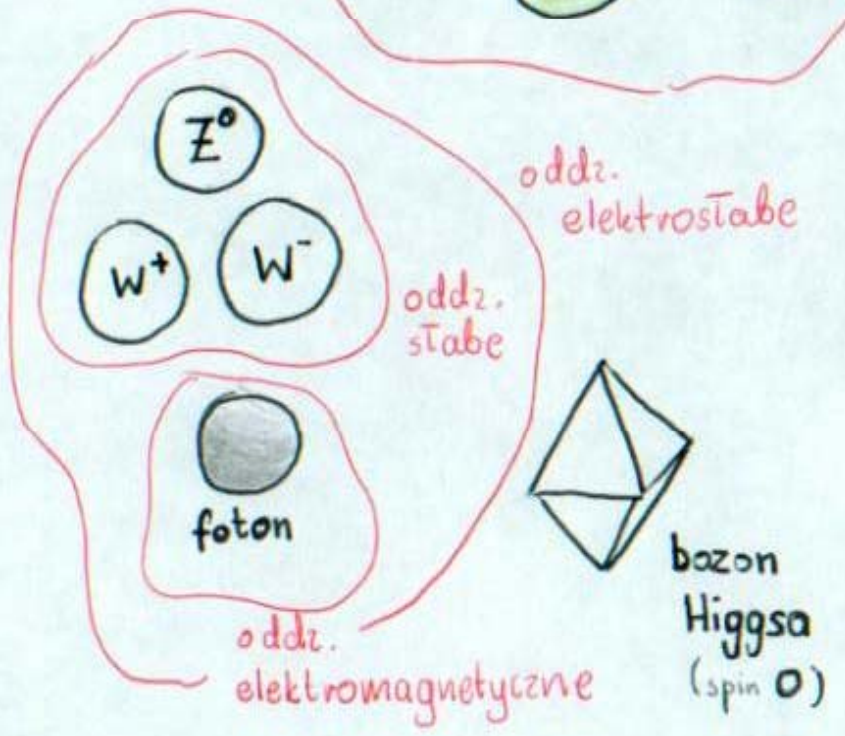 Z⁰
W⁺
W⁻
oddz.
elektrosłabe
oddz.
słabe
foton
oddz.
elektromagnetyczne
bozon
Higgsa
(spin 0)